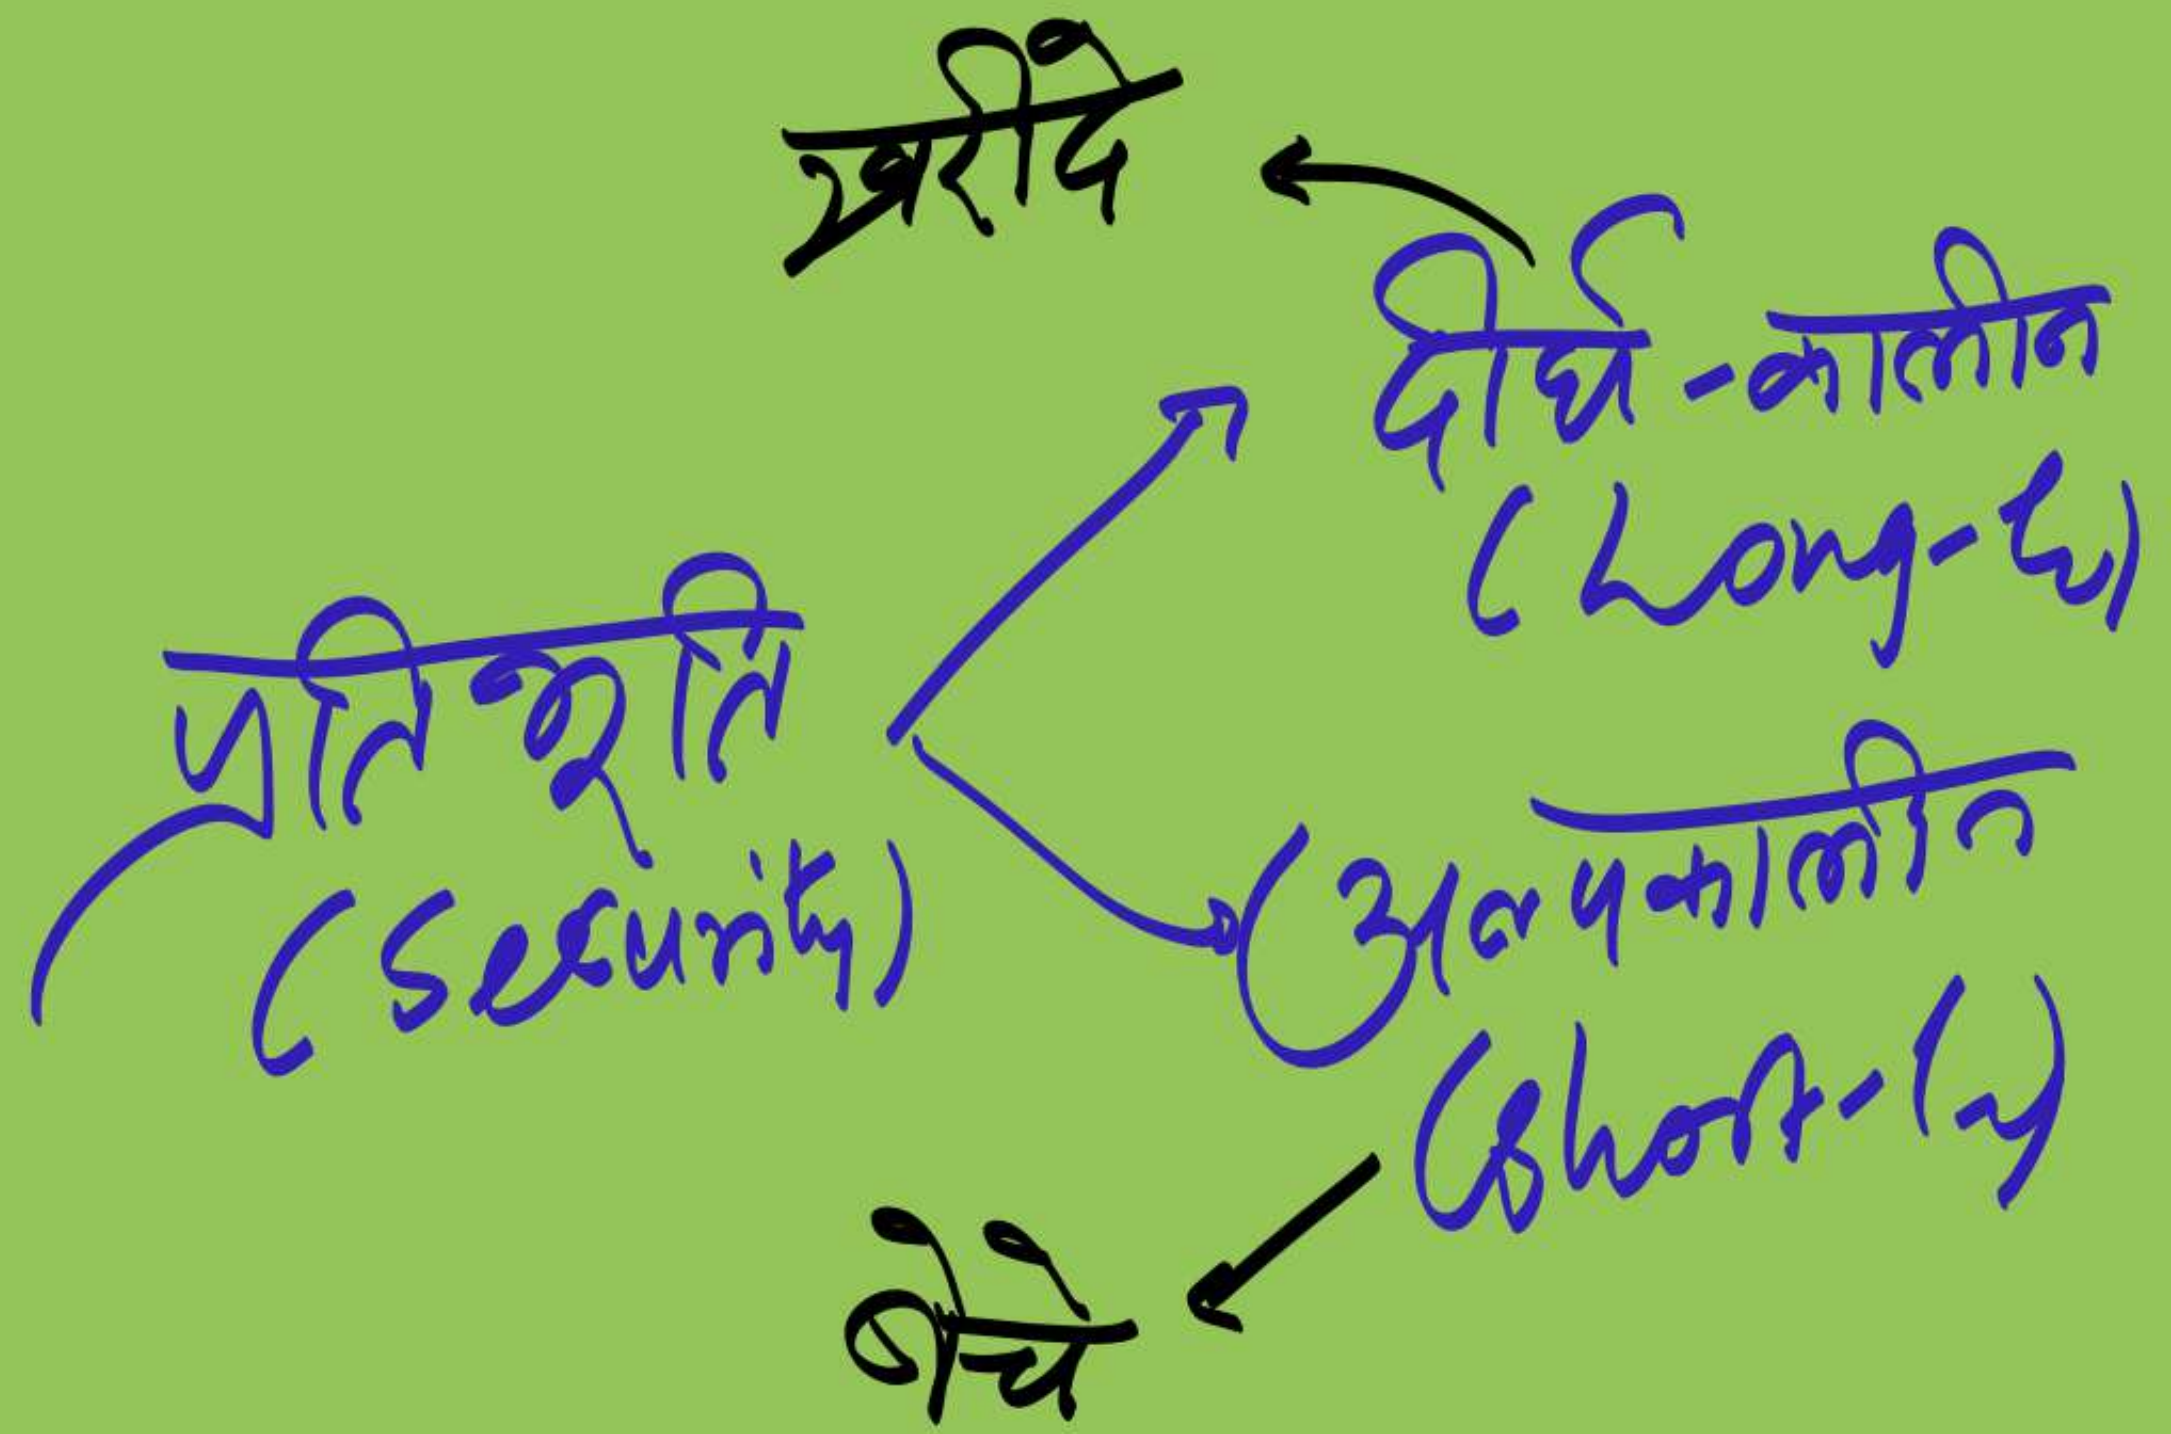 खरीदे
दीर्घ-कालीन
(Long-
प्रतिभूति
(Security)
अल्पकालीन
(Short-
बेचे